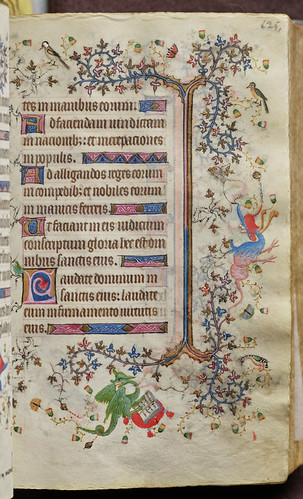 625
tes in manibus eorum:
Ad faciendam vindictam
in nacionib; et increpaciones
in populis.
Ad alligandos reges eorum
in compedib; et nobiles eorum
in manicis ferreis.
Ut faciant in eis iudicium
conscriptum gloria hec est om
nibus sanctis eius:
Laudate dominum in
sanctis eius: laudate
eum in firmamento virtutis
eius.